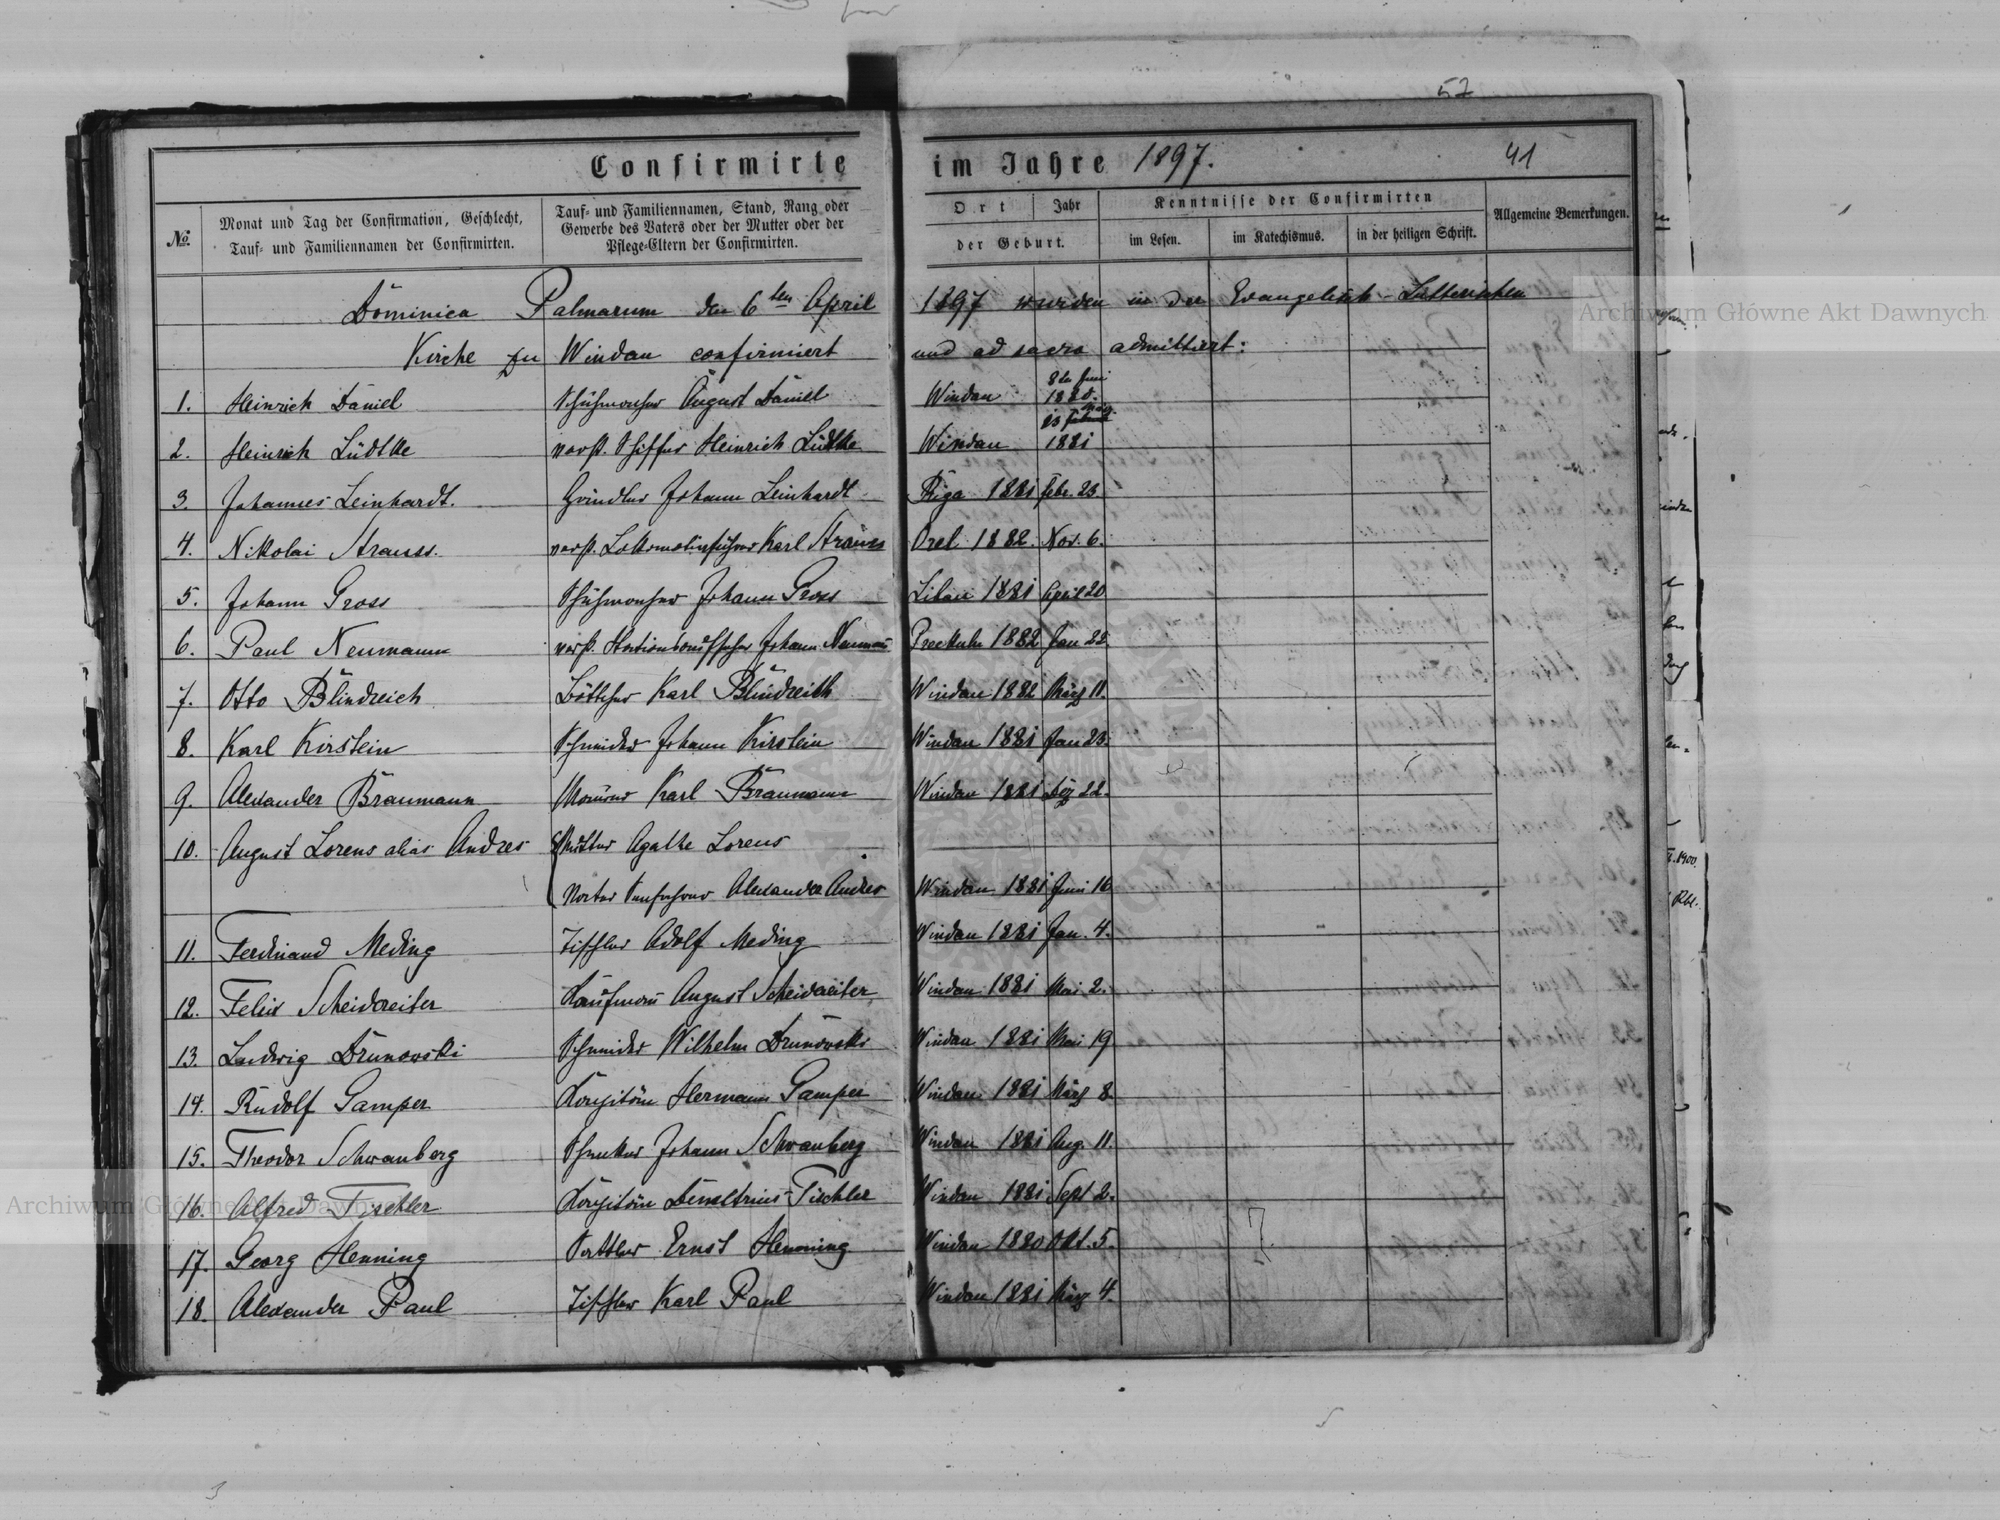 57
Confirmirte im Jahre 1897. 41
No. Monat und Tag der Confirmation, Geschlecht, Tauf- und Familiennamen der Confirmirten.
Tauf- und Familiennamen, Stand, Rang oder Gewerbe des Vaters oder der Mutter oder der Pflege-Eltern der Confirmirten.
Ort Jahr der Geburt.
Kenntnisse der Confirmirten
im Lesen. im Katechismus. in der heiligen Schrift.
Allgemeine Bemerkungen.
Dominica Palmarum den 6ten April 1897 wurden in der Evangelisch-Lutherischen
Kirche zu Windau confirmiert und ad sacra admittirt:
1. Heinrich Daniel Schuhmacher August Daniel Windau 8 Juni 1880.
2. Heinrich Lüdtke verst. Schiffer Heinrich Lüdtke Windau 1881
3. Johannes Leinhardt. Händler Johann Leinhardt Riga 1881 Febr. 23
4. Nikolai Strauss. verst. Lokomotivführer Karl Strauss Orel 1882. Nov. 6.
5. Johann Gross Schuhmacher Johann Gross Libau 1881 April 20
6. Paul Neumann verst. Stationsaufseher Johann Neumann Preekuln 1882 Jan 22.
7. Otto Blindreich Böttcher Karl Blindreich Windau 1882 März 11.
8. Karl Kirstein Schneider Johann Kirstein Windau 1881 Jan 23.
9. Alexander Braumann Maurer Karl Braumann Windau 1881 Dez 22.
10. August Lorens alias Andres Mutter Agathe Lorens
Vater Alexander Andres Windau 1881 Juni 16
11. Ferdinand Meding Tischler Adolf Meding Windau 1881 Jan. 4.
12. Felix Scheidreiter Kaufmann August Scheidreiter Windau 1881 Mai 2.
13. Ludwig Drunowski Schneider Wilhelm Drunowski Windau 1881 Mai 19
14. Rudolf Gamper Kapitän Hermann Gamper Windau 1881 März 8.
15. Theodor Schwanberg Johann Schwanberg Windau 1881 Aug. 11.
16. Alfred Tischler Kapitän Demetrius Tischler Windau 1881 Sept 2.
17. Georg Henning Sattler Ernst Henning Windau 1880 Okt. 5.
18. Alexander Paul Tischler Karl Paul Windau 1881 März 4.
Archiwum Główne Akt Dawnych
Archiwum Główne Akt Dawnych